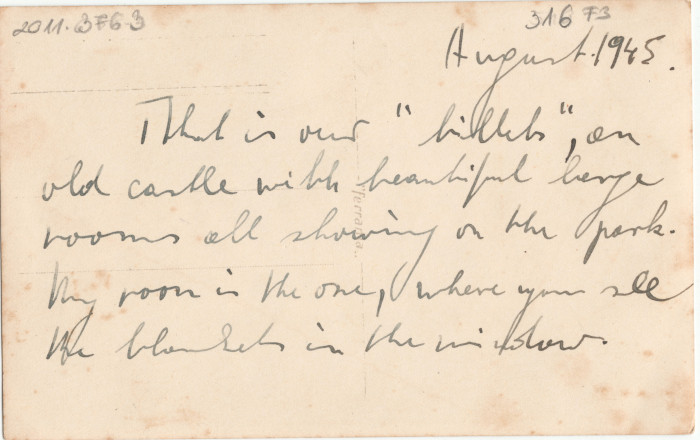 2011.3763
316 F3
August.1945.
That is our "billets", an
old castle with beautiful large
rooms all showing on the park.
My room is the one, where you see
the blankets in the window.
Ferrania